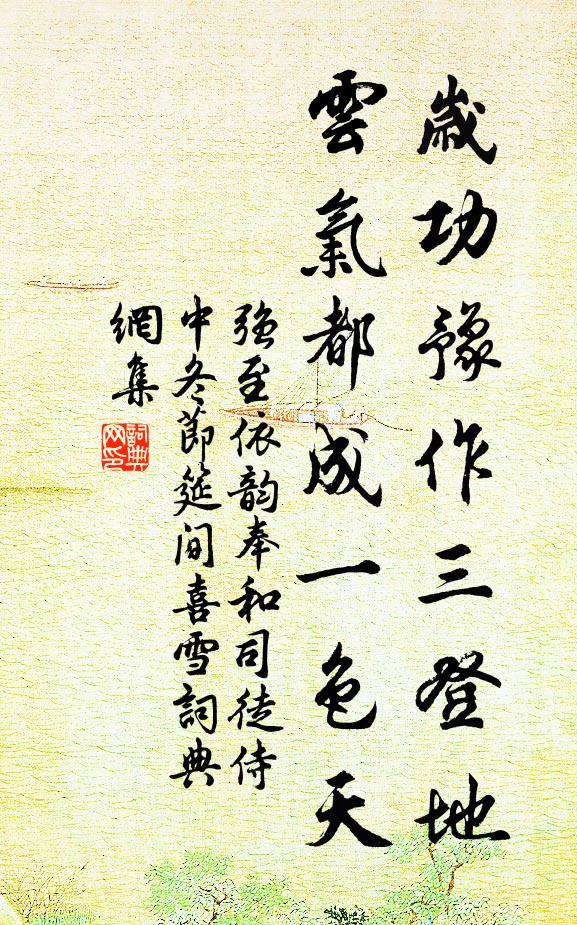 歲功豫作三登地
雲氣都成一色天
強至依韵奉和司徒侍
中冬節筵间喜雪詞典
網集
詞典网印